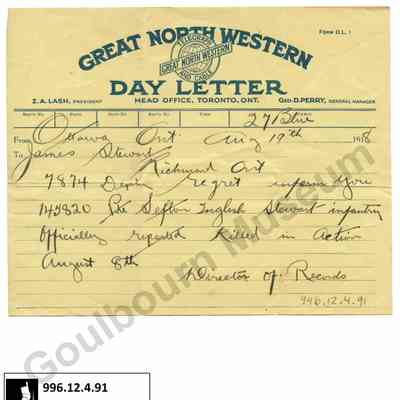 Form D.L. 1
GREAT NORTH WESTERN
TELEGRAPH
GREAT NORTH WESTERN
DAY LETTER
Z.A. LASH, PRESIDENT
HEAD OFFICE, TORONTO, ONT.
GEO. D. PERRY, GENERAL MANAGER
27 / Blue
From Ottawa Ont Aug 19th 1918
To James Stewart
Richmond Ont
7874 Deeply regret inform you
145820 Pte Sefton English Stewart infantry
Officially reported Killed in Action
August 8th
Director of Records
996.12.4.91
Goulbourn Museum
996.12.4.91